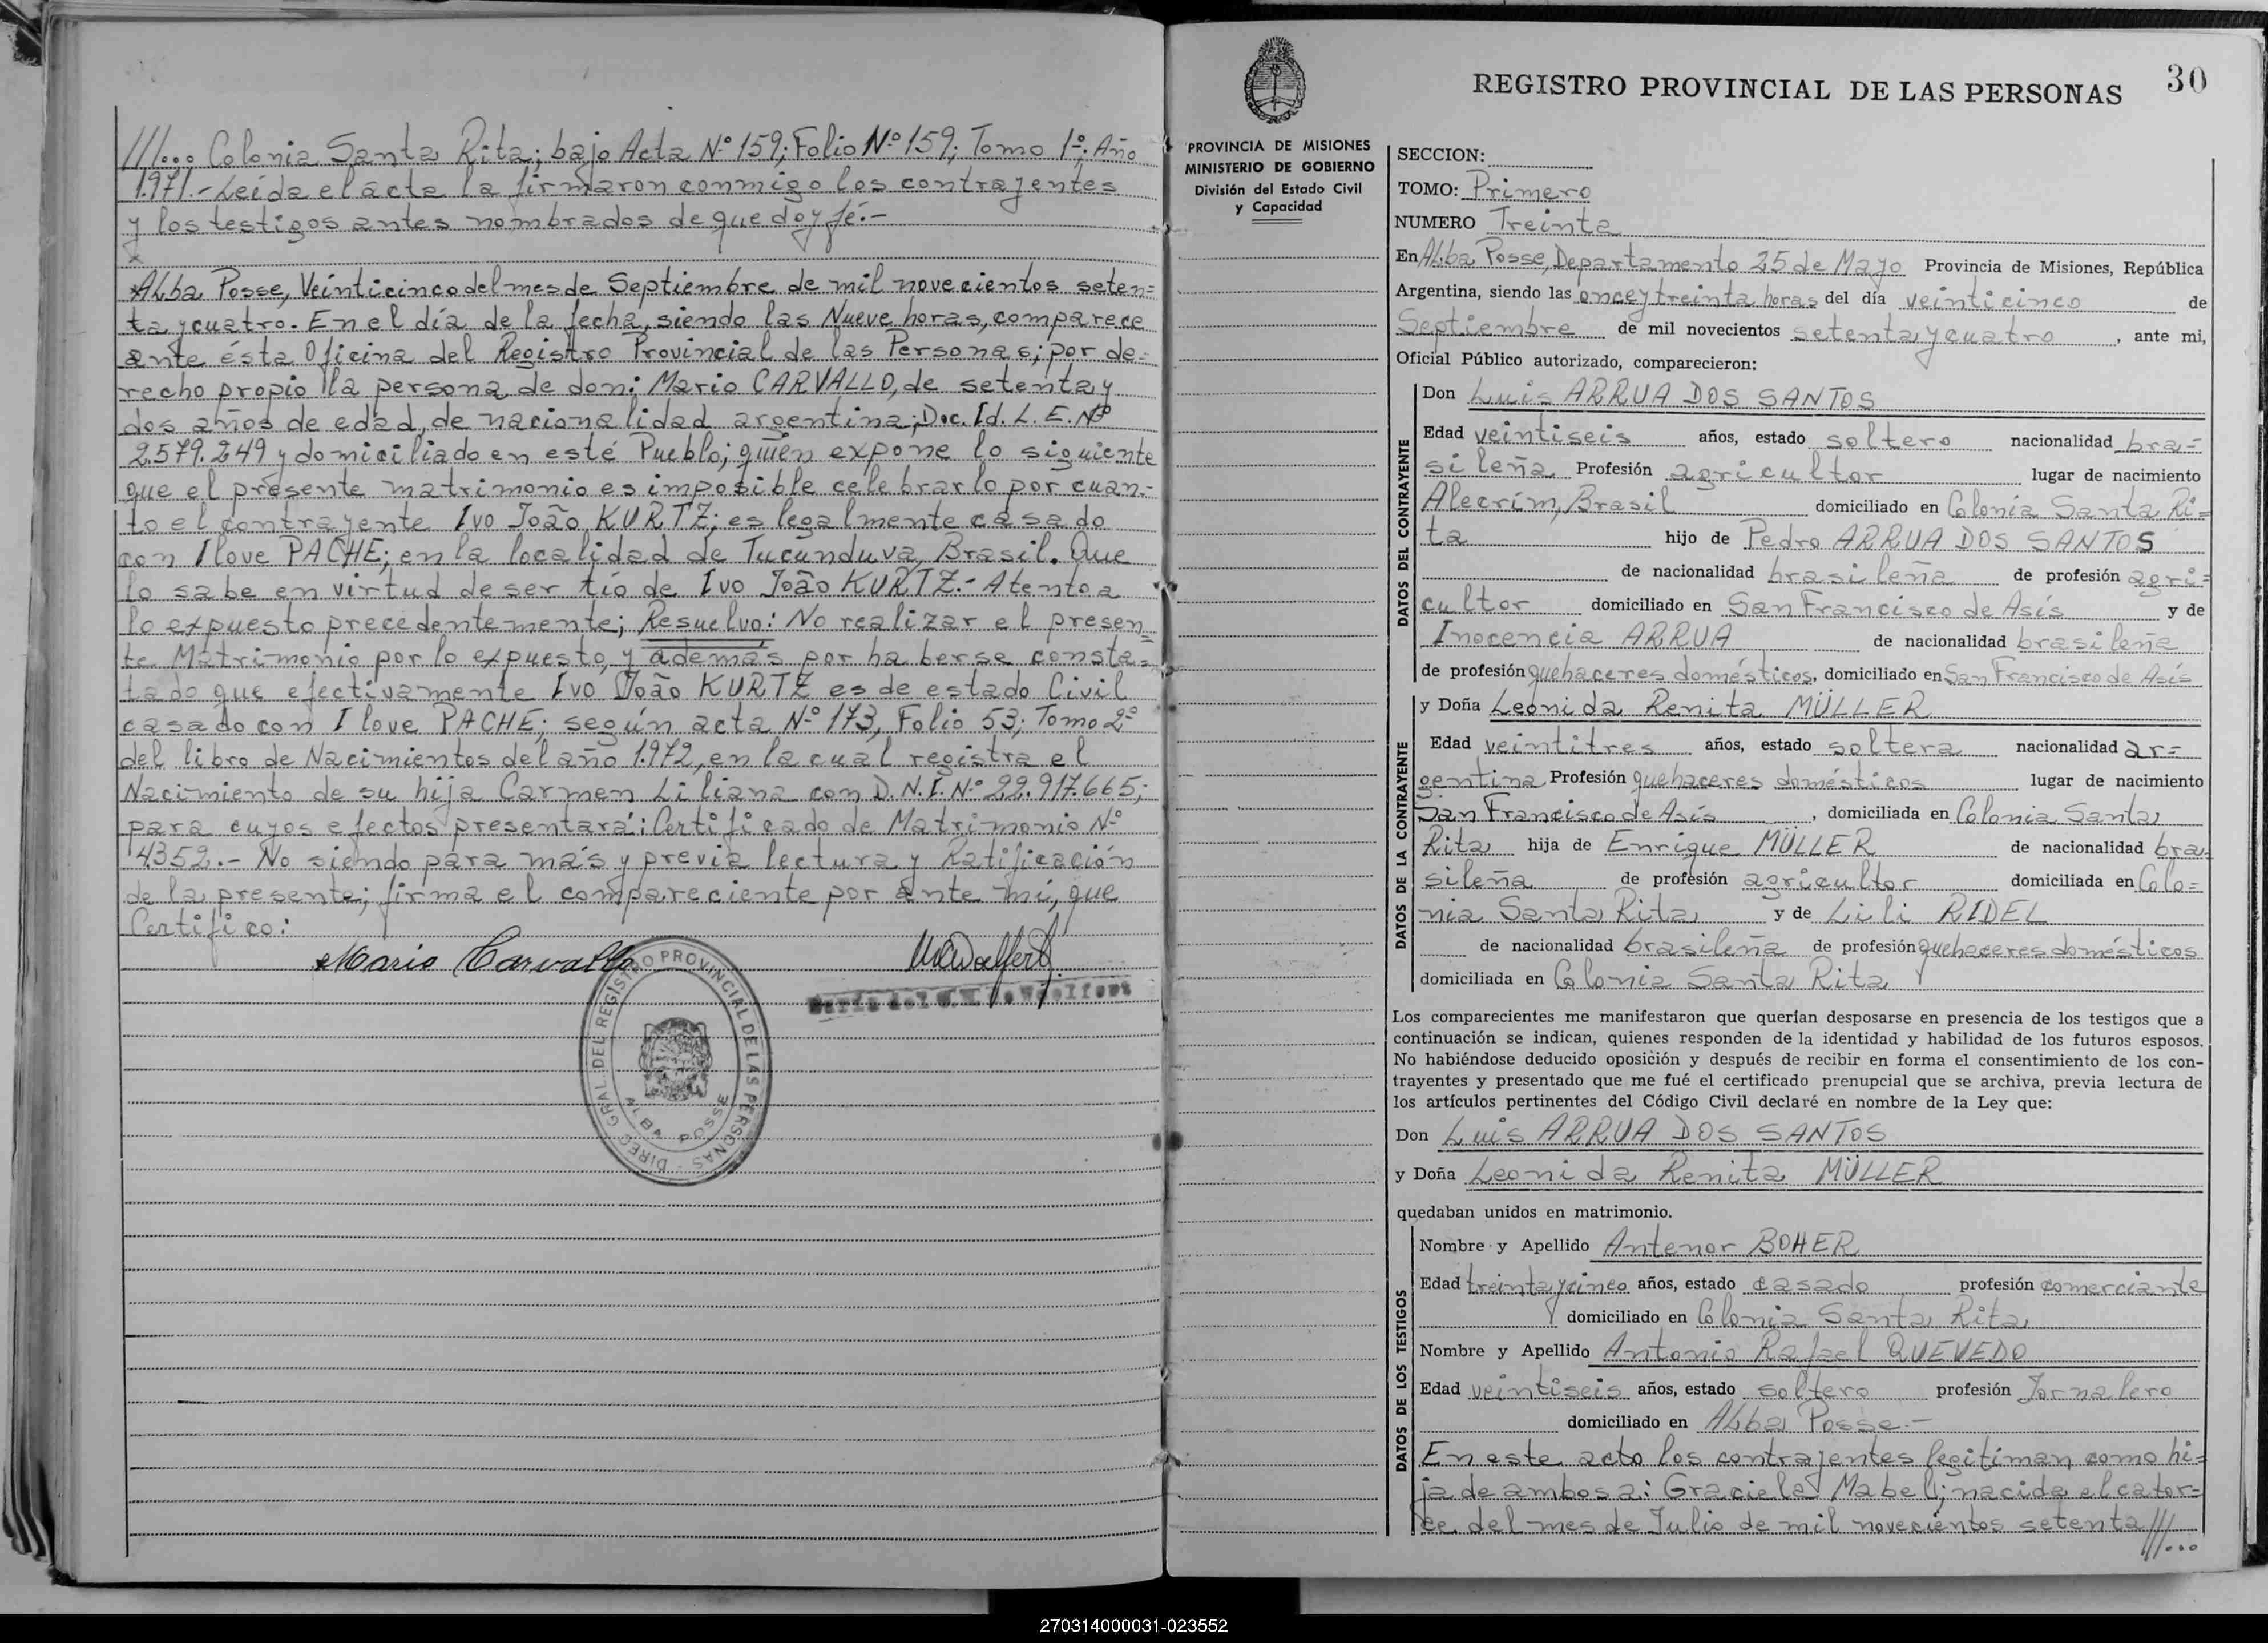 ///... Colonia Santa Rita; bajo Acta Nº 159; Folio Nº 159; Tomo 1º; Año
1.971.- Leída el acta la firmaron conmigo los contrayentes
y los testigos antes nombrados de que doy fé.-
*Alba Posse, Veinticinco del mes de Septiembre de mil novecientos seten=
ta y cuatro. En el día de la fecha, siendo las Nueve horas, comparece
ante ésta Oficina del Registro Provincial de las Personas; por de=
recho propio la persona de don: Mario CARVALLO, de setenta y
dos años de edad, de nacionalidad argentina; Doc. Id. L. E. Nº
2.579.249 y domiciliado en esté Pueblo; quién expone lo siguiente
que el presente matrimonio es imposible celebrarlo por cuan-
to el contrayente Ivo João KURTZ; es legalmente casado
con Ilove PACHE; en la localidad de Tucunduva, Brasil. Que
lo sabe en virtud de ser tío de Ivo João KURTZ.- Atento a
lo expuesto precedentemente; Resuelvo: No realizar el presen=
te Matrimonio por lo expuesto, y además por haberse consta=
tado que efectivamente Ivo João KURTZ es de estado Civil
casado con Ilove PACHE; según acta Nº 173, Folio 53; Tomo 2º
del libro de Nacimientos del año 1.972, en la cual registra el
Nacimiento de su hija Carmen Liliana con D.N.I. Nº 22.917.665;
para cuyos efectos presentará: Certificado de Matrimonio Nº
4352.- No siendo para más y previa lectura y Ratificación
de la presente; firma el compareciente por ante mí, que
Certifico:
Mario Carvallo
DIREC. GRAL. DEL REGISTRO PROVINCIAL DE LAS PERSONAS
ALBA POSSE
30
REGISTRO PROVINCIAL DE LAS PERSONAS
PROVINCIA DE MISIONES
MINISTERIO DE GOBIERNO
División del Estado Civil
y Capacidad
SECCION:
TOMO: Primero
NUMERO Treinta
En Alba Posse, Departamento 25 de Mayo Provincia de Misiones, República
Argentina, siendo las once y treinta horas del día veinticinco de
Septiembre de mil novecientos setenta y cuatro, ante mi,
Oficial Público autorizado, comparecieron:
DATOS DEL CONTRAYENTE
Don Luis ARRUA DOS SANTOS
Edad veintiseis años, estado soltero nacionalidad bra=
sileña Profesión agricultor lugar de nacimiento
Alecrím, Brasil domiciliado en Colonia Santa Ri=
ta hijo de Pedro ARRUA DOS SANTOS
de nacionalidad brasileña de profesión agri=
cultor domiciliado en San Francisco de Asís y de
Inocencia ARRUA de nacionalidad brasileña
de profesión quehaceres domésticos, domiciliado en San Francisco de Asís
DATOS DE LA CONTRAYENTE
y Doña Leonida Renita MÜLLER
Edad veintitres años, estado soltera nacionalidad ar=
gentina Profesión quehaceres domésticos lugar de nacimiento
San Francisco de Asís, domiciliada en Colonia Santa
Rita hija de Enrique MÜLLER de nacionalidad bra
sileña de profesión agricultor domiciliada en Colo=
nia Santa Rita y de Lili RIDEL
de nacionalidad brasileña de profesión quehaceres domésticos
domiciliada en Colonia Santa Rita
Los comparecientes me manifestaron que querían desposarse en presencia de los testigos que a
continuación se indican, quienes responden de la identidad y habilidad de los futuros esposos.
No habiéndose deducido oposición y después de recibir en forma el consentimiento de los con-
trayentes y presentado que me fué el certificado prenupcial que se archiva, previa lectura de
los artículos pertinentes del Código Civil declaré en nombre de la Ley que:
Don Luis ARRUA DOS SANTOS
y Doña Leonida Renita MÜLLER
quedaban unidos en matrimonio.
DATOS DE LOS TESTIGOS
Nombre y Apellido Antenor BOHER
Edad treinta y cinco años, estado casado profesión comerciante
domiciliado en Colonia Santa Rita
Nombre y Apellido Antonio Rafael QUEVEDO
Edad veintiseis años, estado soltero profesión Jornalero
domiciliado en Alba Posse.-
En este acto los contrayentes legitiman como hi=
ja de ambos a: Graciela Mabel; nacida el cator=
ce del mes de Julio de mil novecientos setenta///...
270314000031-023552